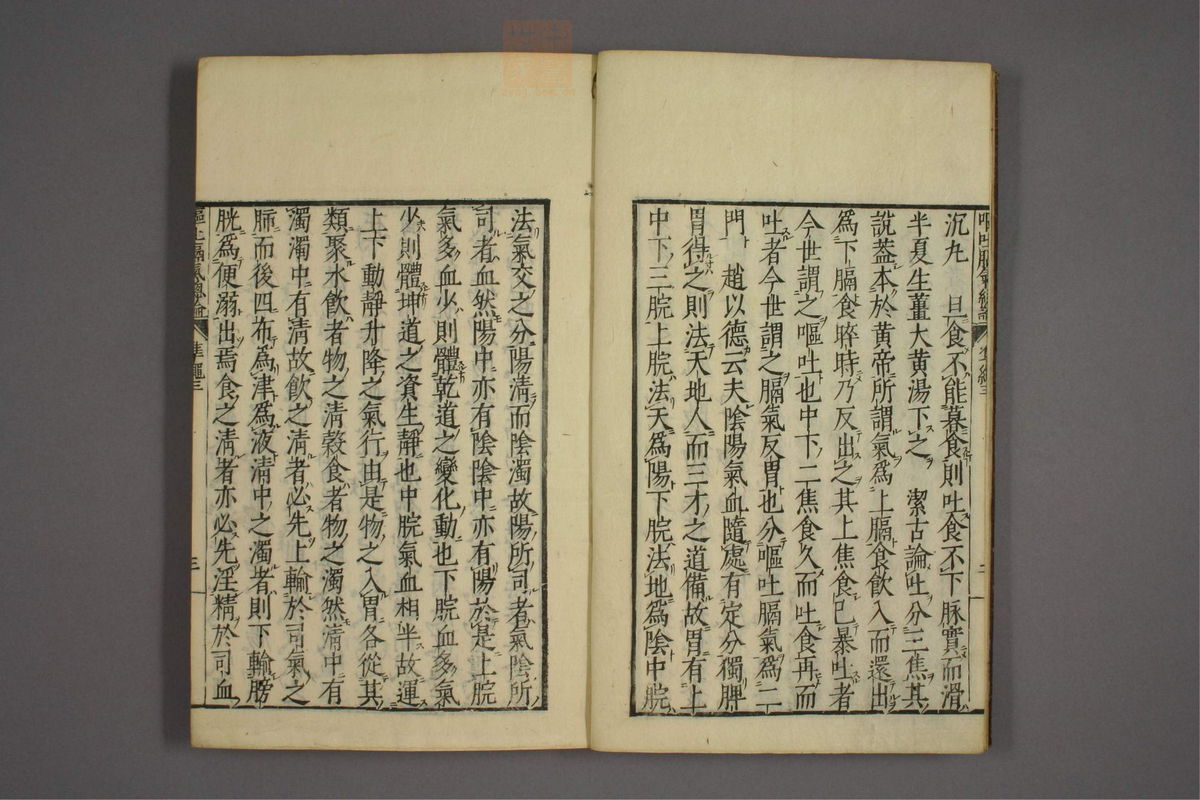 沉九　旦食不能暮食則吐食不下脉實而滑
半夏生薑大黃湯下之　潔古論吐分三焦其
說葢本於黃帝所謂氣爲上膈食飲入而還出
爲下膈食晬時乃反出之其上焦食已暴吐者
今世謂之嘔吐也中下二焦食久而吐食再而
吐者今世謂之膈氣反胃也分嘔吐膈氣爲二
門　趙以德云夫陰陽氣血隨處有定分獨脾
胃得之則法天地人而三才之道備故胃有上
中下三脘上脘法天爲陽下脘法地爲陰中脘
法氣交之分陽淸而陰濁故陽所司者氣陰所
司者血然陽中亦有陰陰中亦有陽於是上脘
氣多血少則體乾道之變化動也下脘血多氣
少則體坤道之資生靜也中脘氣血相半故運
上下動靜升降之氣行由是物之入胃各從其
類聚水飲者物之淸穀食者物之濁然淸中有
濁濁中有淸故飲之淸者必先上輸於司氣之
肺而後四布為津爲液淸中之濁者則下輸膀
胱爲便溺出焉食之淸者亦必先淫精於司血
嘔吐膈氣總論　準繩三　三